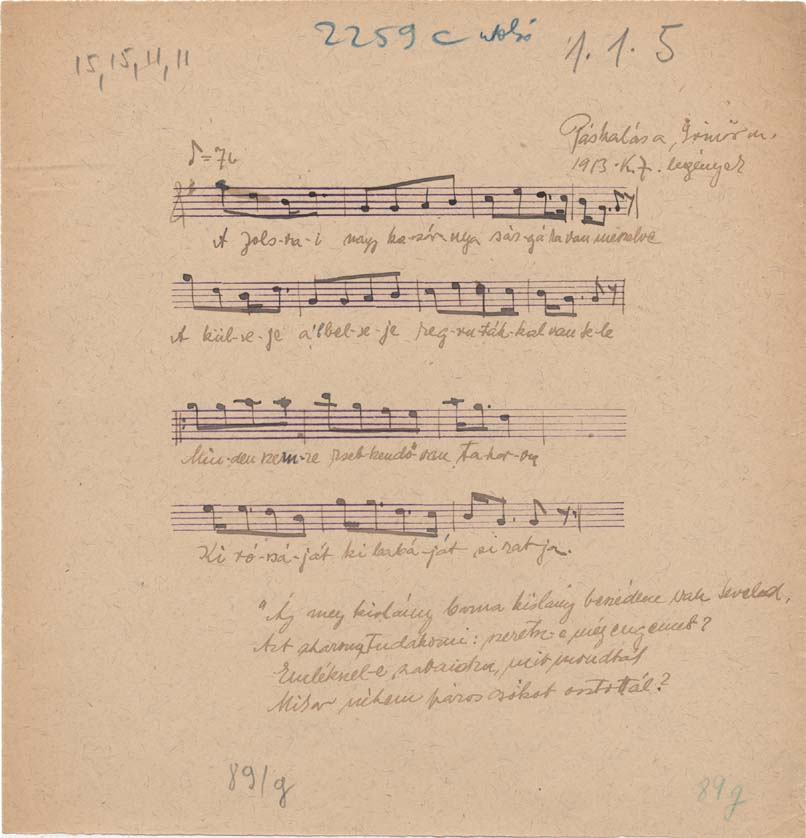 2259 c utolsó
1. 1. 5
15, 15, 11, 11
Páskaháza, Gömör m.
♪ = 76
1913. K. Z. legények
A zols-va-i nagy ka-szár-nya sár-gá-ra van
A kül-se-je a bel-se-je reg-ru-ták-kal van te-le
Min-den szem-re zseb-kendő van ta-kar-va
Ki ró-zsá-ját ki babá-ját si rat ja.
kislány barna kislány beszédem van veled,
Azt akarom tudakozni: szeretsz-e még engemet?
szavaidra, mit mondtál
Mikor nékem páros csókot osztottál?
89/g
89 g